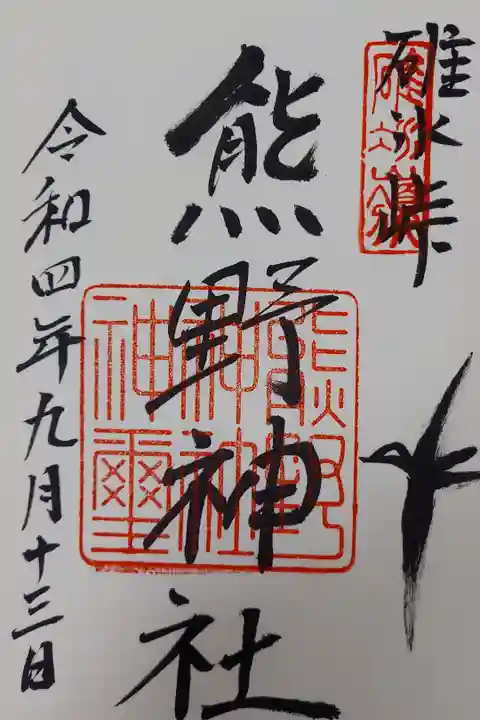 碓氷峠
熊野神社
令和四年九月十三日
熊野
神社
神璽